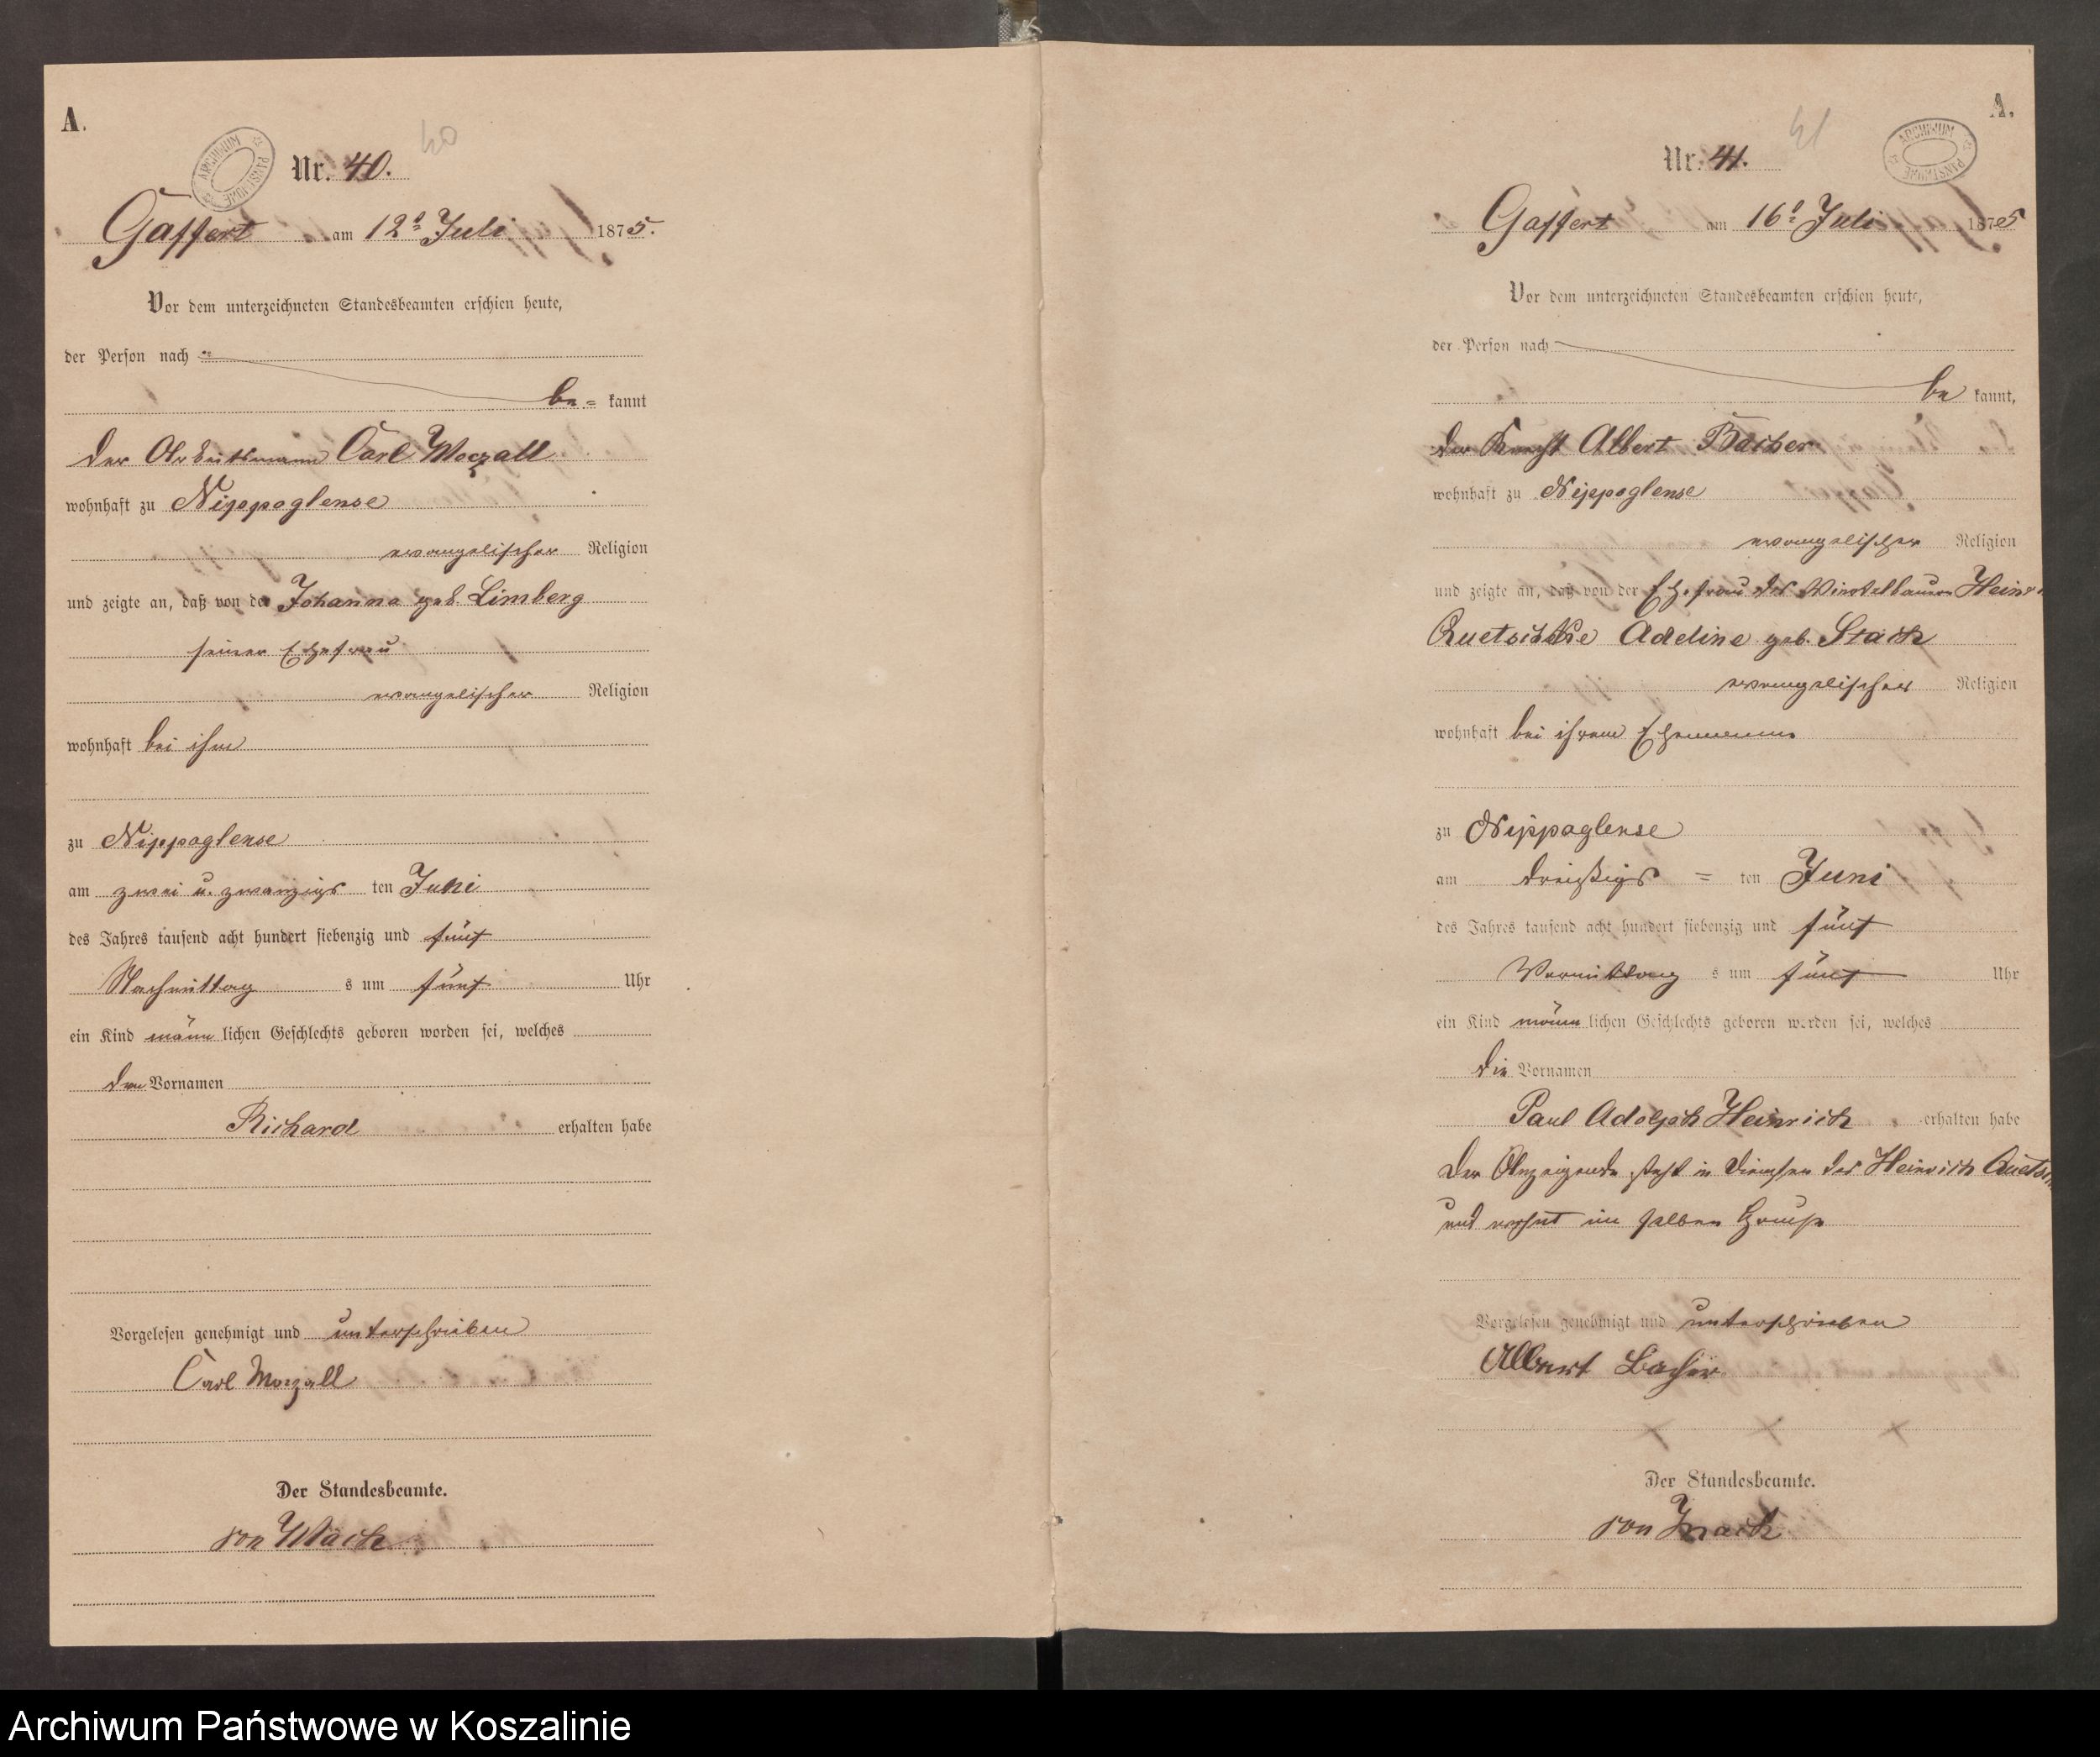 A.
ARCHIWUM PAŃSTWOWE
40
Nr. 40.
Gaffert am 12t Juli 1875.
Vor dem unterzeichneten Standesbeamten erschien heute,
der Person nach
be= kannt
der Arbeitsmann Carl Moczall
wohnhaft zu Nippoglense
evangelischer Religion
und zeigte an, daß von der Johanna geb. Limberg
seiner Ehefrau
evangelischer Religion
wohnhaft bei ihm
zu Nippoglense
am zwei u. zwanzigs ten Juni
des Jahres tausend acht hundert siebenzig und fünf
Nachmittag s um fünf Uhr
ein Kind männ lichen Geschlechts geboren worden sei, welches
den Vornamen
Richard erhalten habe
Vorgelesen genehmigt und unterschrieben
Carl Moczall
Der Standesbeamte.
von
A.
ARCHIWUM PAŃSTWOWE
41
Nr. 41.
Gaffert am 16t Juli 1875
Vor dem unterzeichneten Standesbeamten erschien heute,
der Person nach
be kannt,
der Knecht Albert Bacher
wohnhaft zu Nippoglense
evangelischer Religion
und zeigte an, daß von der Ehefrau des Heinr
Adeline geb. Stach
evangelischer Religion
wohnhaft bei ihrem Ehemanne
zu Nippoglense
am dreißigs = ten Juni
des Jahres tausend acht hundert siebenzig und fünf
Vormittag s um fünf Uhr
ein Kind männ lichen Geschlechts geboren worden sei, welches
die Vornamen
Paul Adolph Heinrich erhalten habe
Der Anzeigende steht in Diensten des Heinrich
und wohnt im selben Hause
Vorgelesen genehmigt und unterschrieben
Albert Bacher
Der Standesbeamte.
von
Archiwum Państwowe w Koszalinie